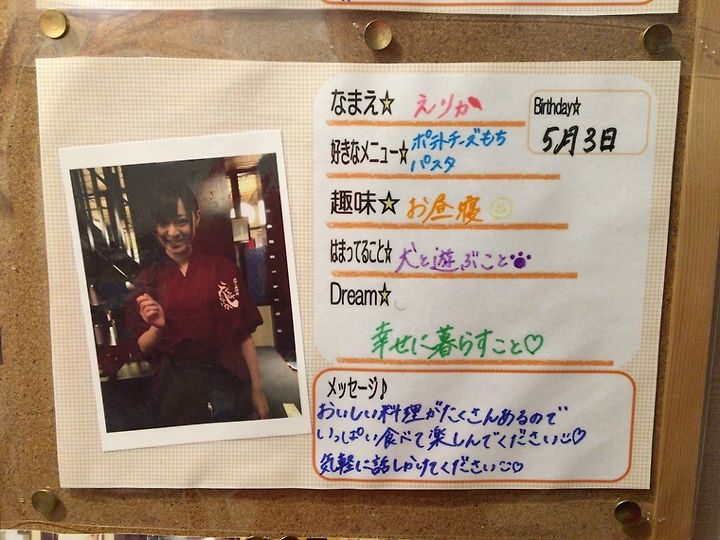 なまえ☆ えりか
Birthday☆
5月3日
好きなメニュー☆ ポテトチーズもち
パスタ
趣味☆ お昼寝
はまってること☆ 犬と遊ぶこと
Dream☆
幸せに暮らすこと♡
メッセージ♪
おいしい料理がたくさんあるので
いっぱい食べて楽しんでください♡
気軽に話しかけてください♡